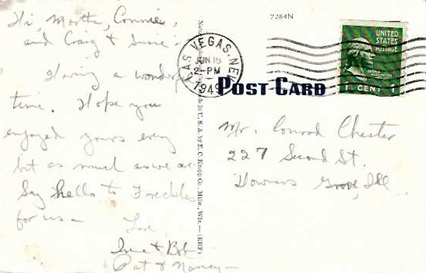 Hi, Martha, Connie,
and Craig & Susie:
Having a wonderful
time. Hope you
enjoyed yours every
bit as much as we are.
Say hello to Freckles
for us —
Love,
Irene & Bob
Pat & Nancy —
7284N
LAS VEGAS, NEV.
JUN 15
2-PM
1949
UNITED
STATES
POSTAGE
1 CENT 1
POST CARD
Mr. Conrad Chester
227 Second St.
Downers Grove, Ill.
in U.S.A. by E. C. Kropp Co., Milw., Wis.